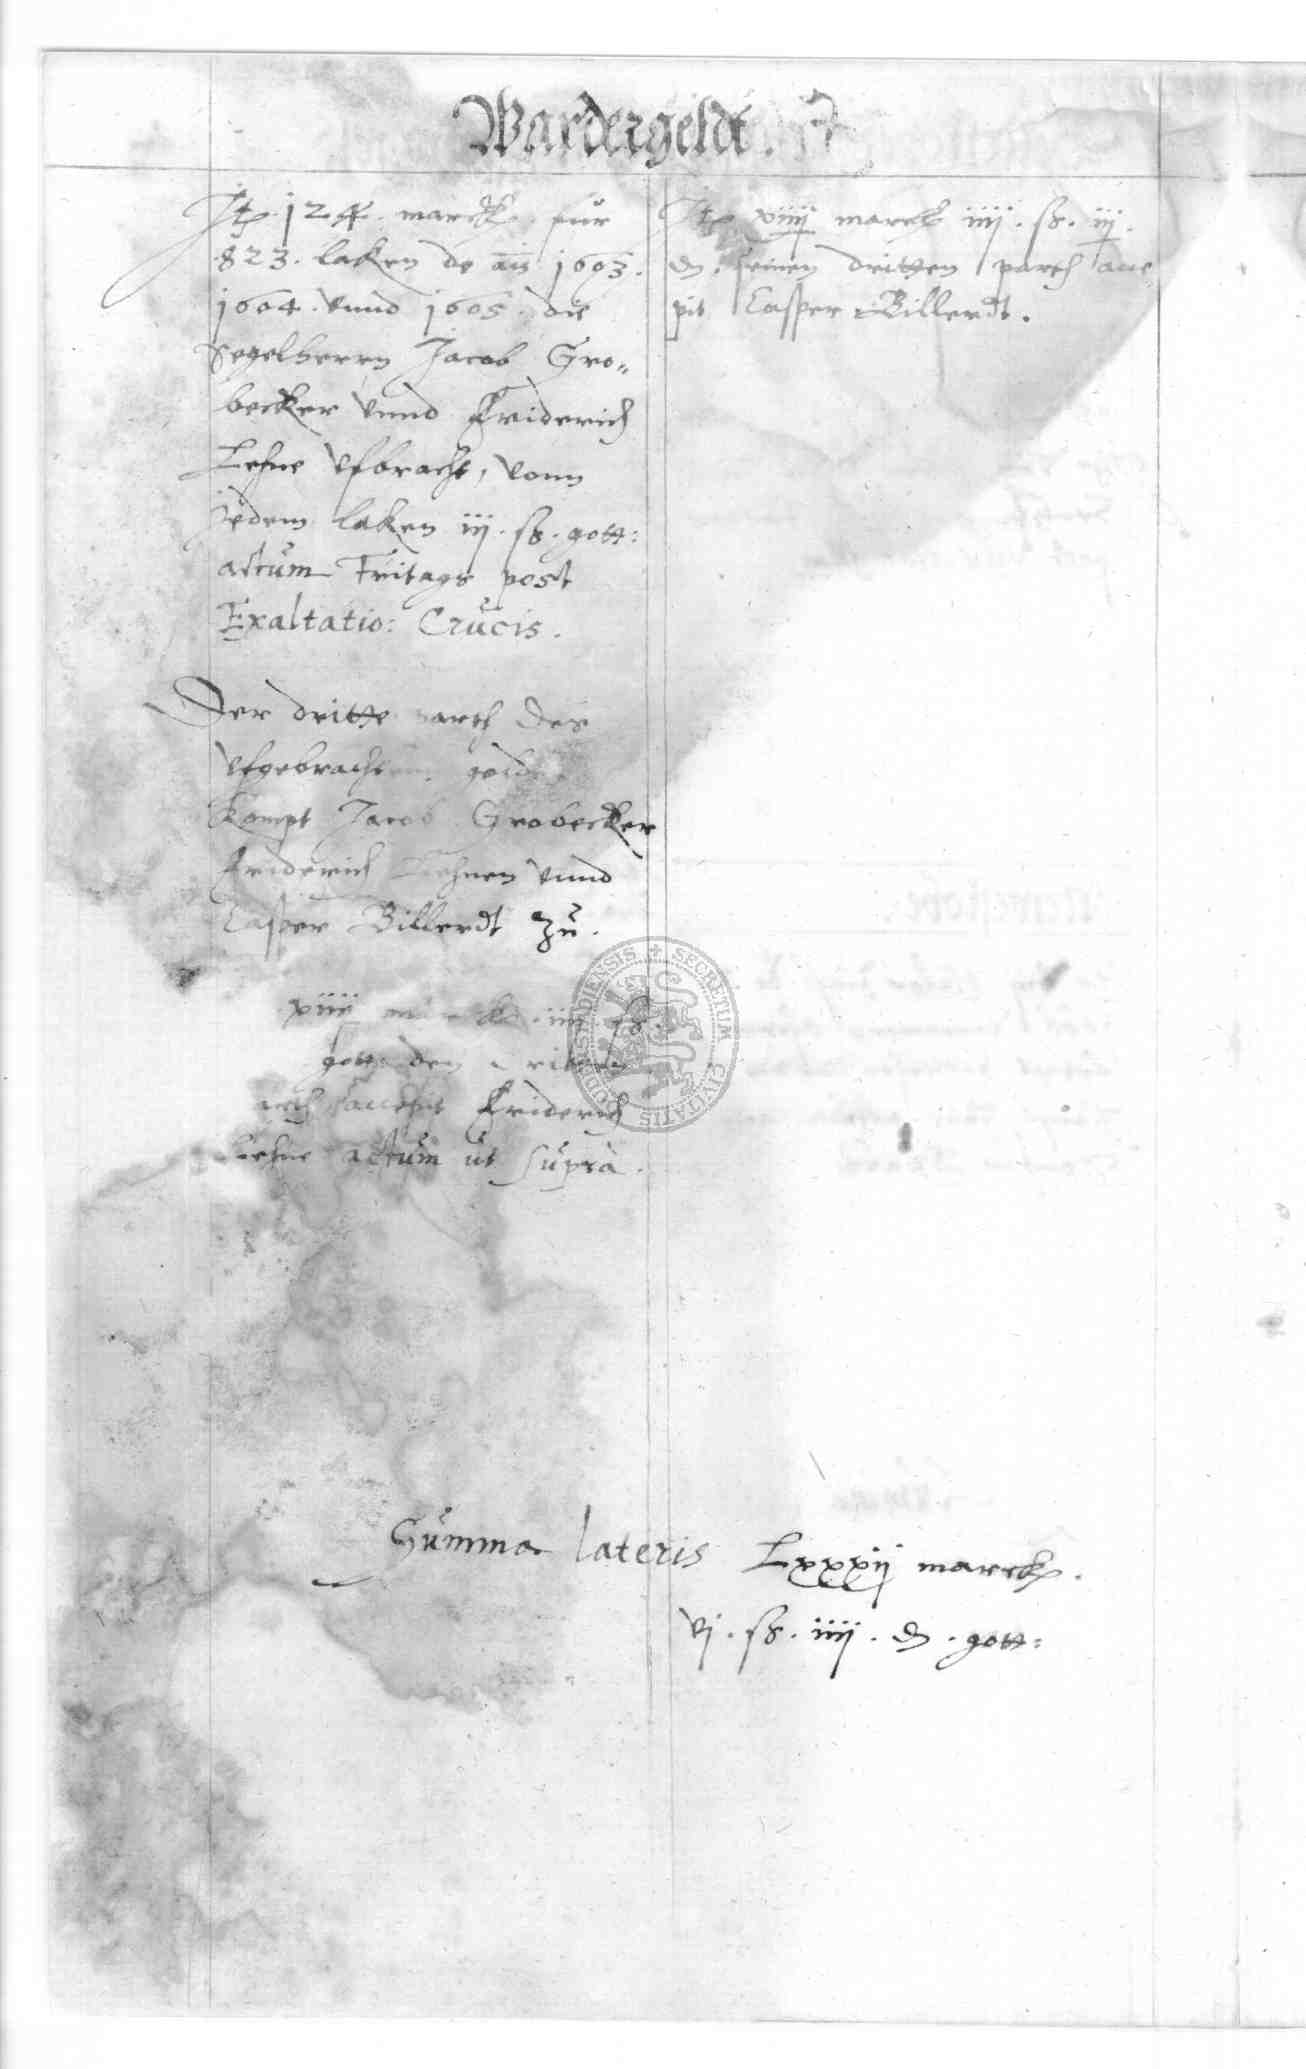 Wardergeldt.
Jtem 124 marck für
823. laken de annis 1603.
1604. vnnd 1605. die
Segelherrn Jacob Gro-
becker vnnd Friderich
Lehne vfbracht, vonn
jedem laken iij. ß. gott:
actum Fritags post
Exaltatio: Crucis.
Der dritte parth des
vfgebrachten
kompt Jacob Grobecker
Friderich Lehnen vnnd
Casper Billerdt zu.
xiiij marck iiij ß.
gott: den dritten
parth accepit Friderich
Lehne actum ut supra.
Jtem xiiij marck iiij. ß. iij.
d. seinen dritten parth acce
pit Casper Billerdt.
SECRETUM CIVITATIS DUDERSTADIENSIS
Summa lateris Lxxxij marck.
vj. ß. iiij. d. gott: